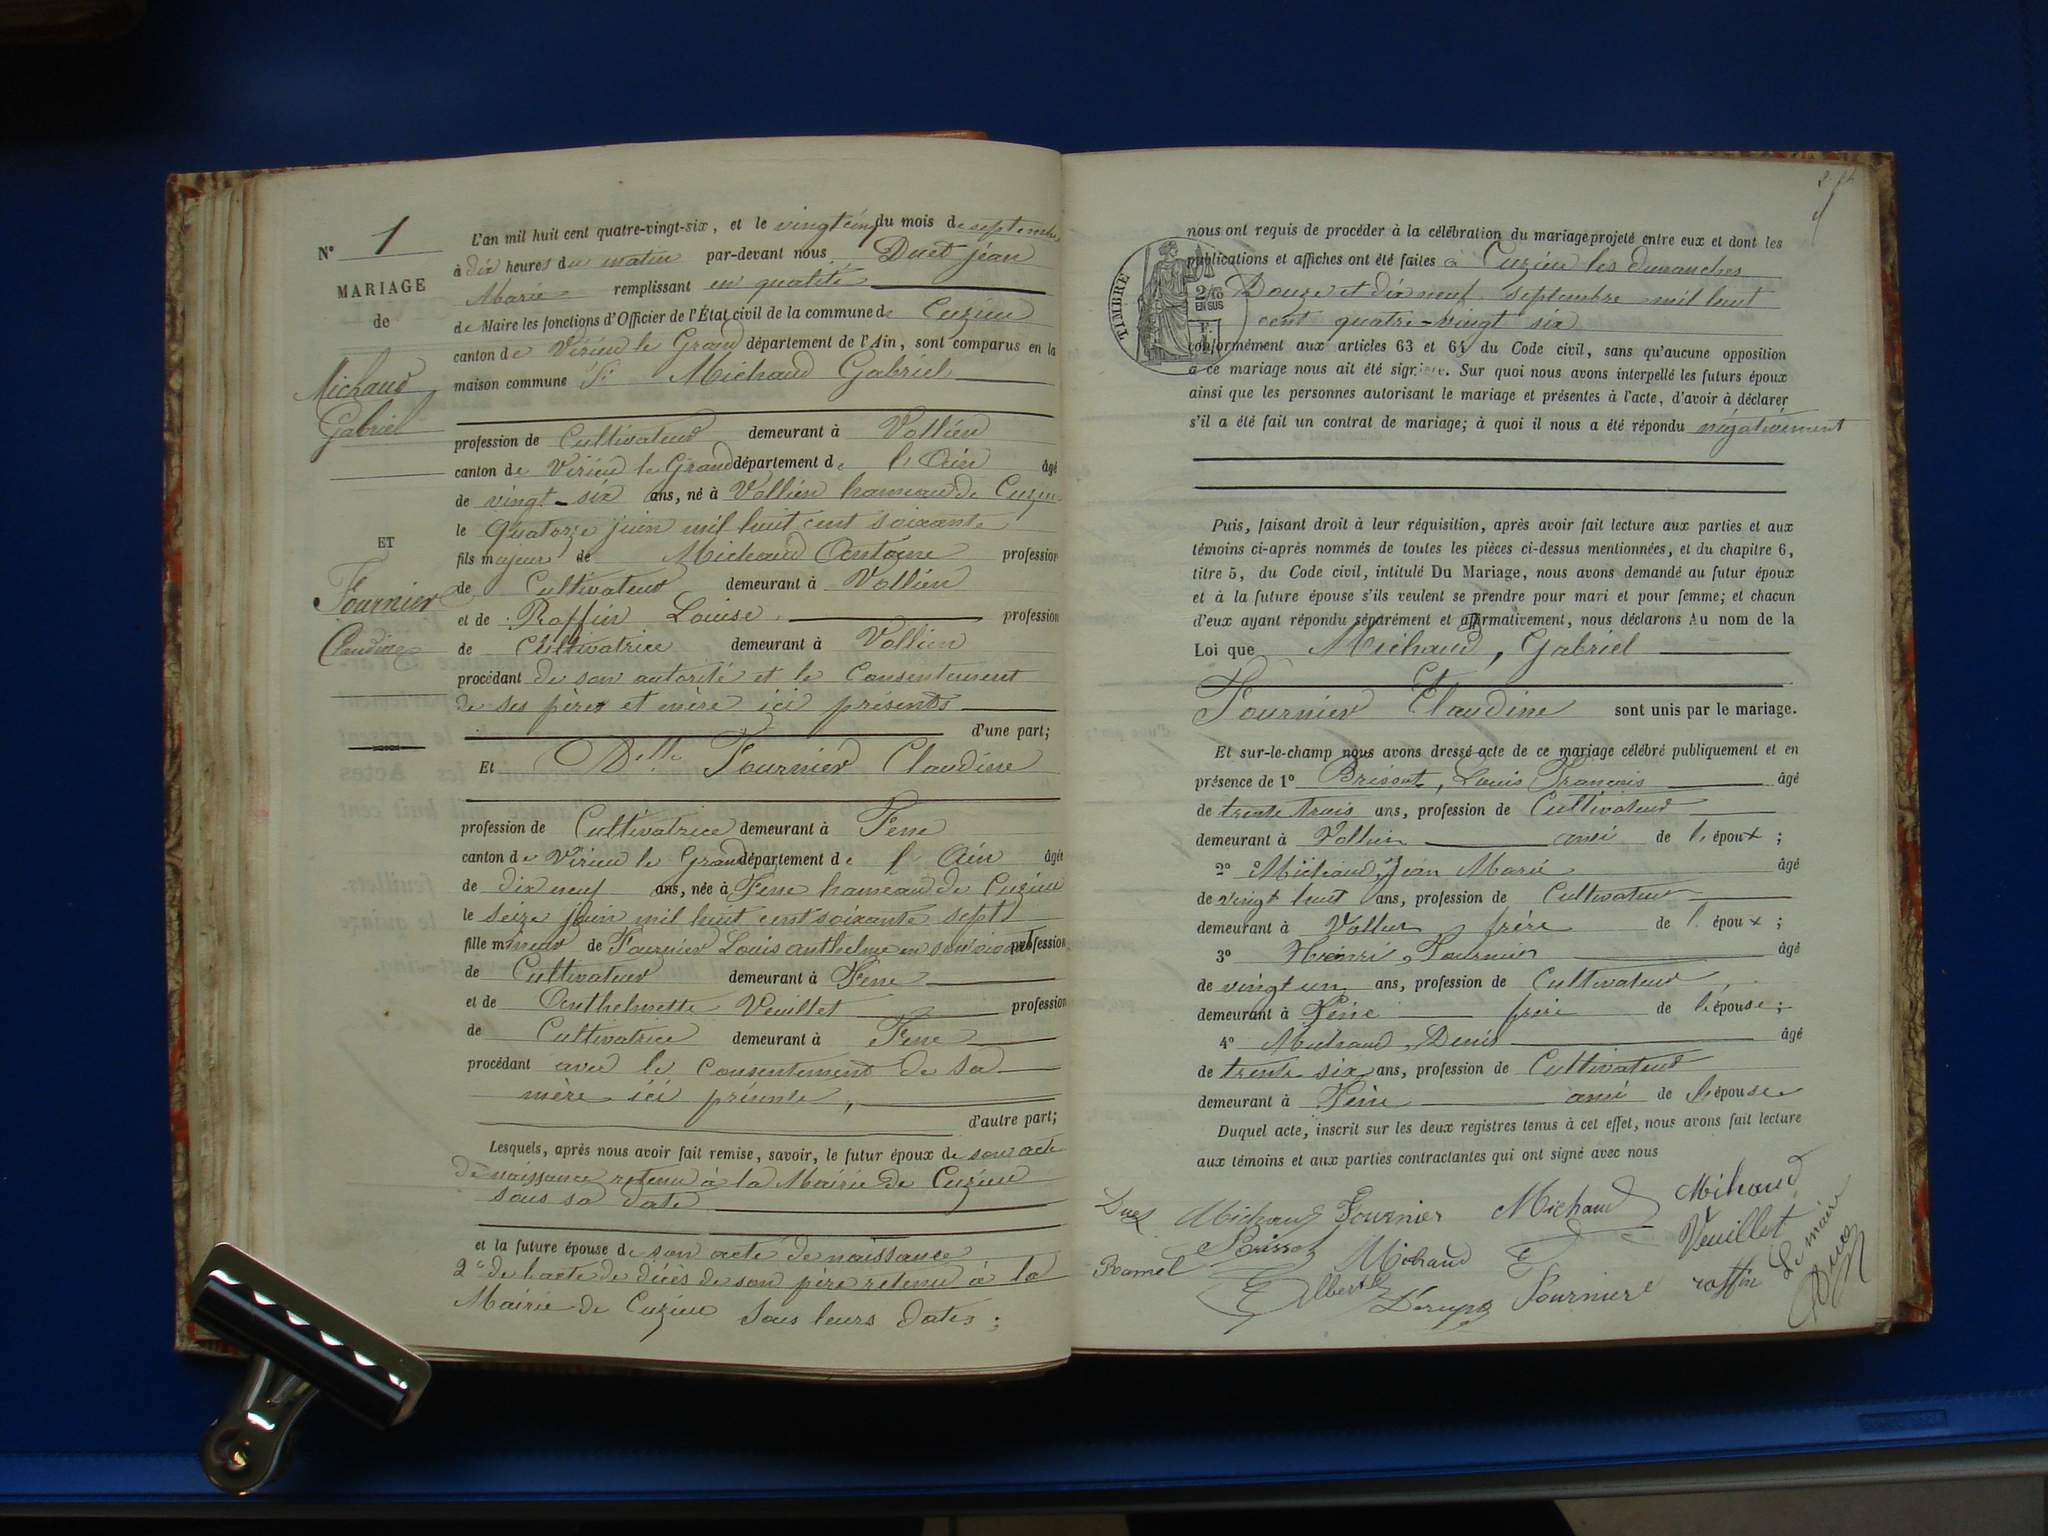 N° 1
MARIAGE
de
Michaud
Gabriel
ET
Fournier
Claudine
L'an mil huit cent quatre-vingt-six, et le vingt cinq du mois de septembre
à dix heures du matin par-devant nous Duet jean
Marie remplissant en qualité
de Maire les fonctions d'Officier de l'État civil de la commune de Cuzieu
canton de Virieu le Grand département de l'Ain, sont comparus en la
maison commune Sr Michaud Gabriel
profession de Cultivateur demeurant à Vollien
canton de Virieu le Grand département de l'Ain âgé
de vingt-six ans, né à Vollien hameau de Cuzieu
le Quatorze juin mil huit cent soixante
fils majeur de Michaud Antoine profession
de Cultivateur demeurant à Vollien
et de Roffin Louise profession
de Cultivatrice demeurant à Vollien
procédant de son autorité et le Consentement
de ses père et mère ici présents
d'une part;
Et Delle Fournier Claudine
profession de Cultivatrice demeurant à Fene
canton de Virieu le Grand département de l'Ain âgée
de dix neuf ans, née à Fene hameau de Cuzieu
le seize juin mil huit cent soixante sept
fille mineur de Fournier Louis anthelme en son vivant profession
de Cultivateur demeurant à Fene
et de Anthelmette Veuillet profession
de Cultivatrice demeurant à Fene
procédant avec le Consentement de sa
mère ici présente,
d'autre part;
Lesquels, après nous avoir fait remise, savoir, le futur époux de son acte
de naissance retenu à la Mairie de Cuzieu
sous sa date
et la future épouse de son acte de naissance
2° de l'acte de décès de son père retenu à la
Mairie de Cuzieu sous leurs dates;
nous ont requis de procéder à la célébration du mariage projeté entre eux et dont les
publications et affiches ont été faites à Cuzieu les dimanches
Douze et dix neuf septembre mil huit
cent quatre-vingt six
TIMBRE
2/10
EN SUS
conformément aux articles 63 et 64 du Code civil, sans qu'aucune opposition
à ce mariage nous ait été signifiée. Sur quoi nous avons interpellé les futurs époux
ainsi que les personnes autorisant le mariage et présentes à l'acte, d'avoir à déclarer
s'il a été fait un contrat de mariage; à quoi il nous a été répondu négativement
Puis, faisant droit à leur réquisition, après avoir fait lecture aux parties et aux
témoins ci-après nommés de toutes les pièces ci-dessus mentionnées, et du chapitre 6,
titre 5, du Code civil, intitulé Du Mariage, nous avons demandé au futur époux
et à la future épouse s'ils veulent se prendre pour mari et pour femme; et chacun
d'eux ayant répondu séparément et affirmativement, nous déclarons Au nom de la
Loi que Michaud, Gabriel
Et
Fournier Claudine sont unis par le mariage.
Et sur-le-champ nous avons dressé acte de ce mariage célébré publiquement et en
présence de 1° Brissot, Louis François âgé
de trente trois ans, profession de Cultivateur
demeurant à Vollien ami de l'époux;
2° Michaud, Jean Marie âgé
de vingt huit ans, profession de Cultivateur
demeurant à Vollien frère de l'époux;
3° Henri, Fournier âgé
de vingt un ans, profession de Cultivateur
demeurant à Fène frère de l'épouse;
4° Michaud, Denis âgé
de trente six ans, profession de Cultivateur
demeurant à Fène ami de l'épouse
Duquel acte, inscrit sur les deux registres tenus à cet effet, nous avons fait lecture
aux témoins et aux parties contractantes qui ont signé avec nous
Duet Michaud Fournier Michaud Mihaud
Brissot Veuillet
Ramel Michaud Le maire
Albert Fournier roffin Duet